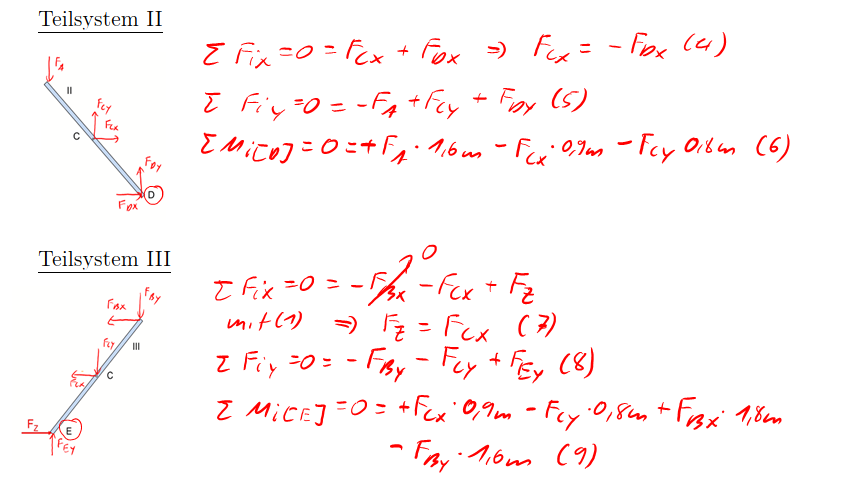 Teilsystem II
F_A
II
F_Cy
F_Cx
C
F_Dy
F_Dx
D
Σ F_ix = 0 = F_Cx + F_Dx ⇒ F_Cx = - F_Dx (4)
Σ F_iy = 0 = - F_A + F_Cy + F_Dy (5)
Σ M_i[D] = 0 = + F_A · 1,6m - F_Cx · 0,9m - F_Cy 0,8m (6)
Teilsystem III
F_By
F_Bx
III
F_Cy
F_Cx
C
F_Z
E
F_Ey
Σ F_ix = 0 = - F_Bx 0 - F_Cx + F_Z
mit (1) ⇒ F_Z = F_Cx (7)
Σ F_iy = 0 = - F_By - F_Cy + F_Ey (8)
Σ M_i[E] = 0 = + F_Cx · 0,9m - F_Cy · 0,8m + F_Bx · 1,8m
- F_By · 1,6m (9)